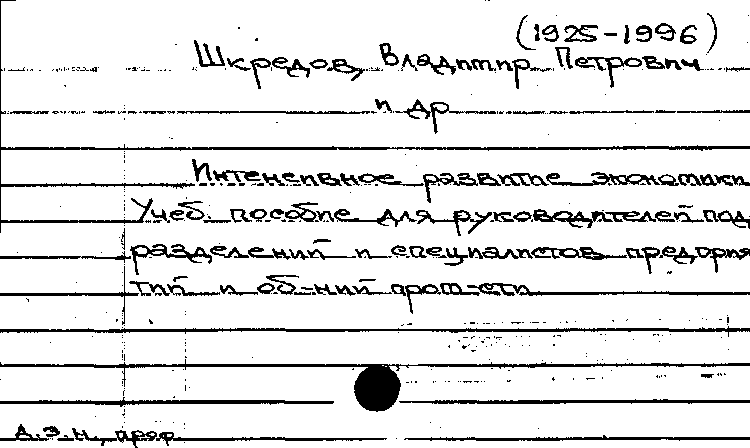 (1925-1996)
Шкредов, Владимир Петрович
и др
Интенсивное развитие экономики
Учеб. пособие для руководителей под
разделений и специалистов предприя
тий и об-ний пром-сти
д.э.н., проф